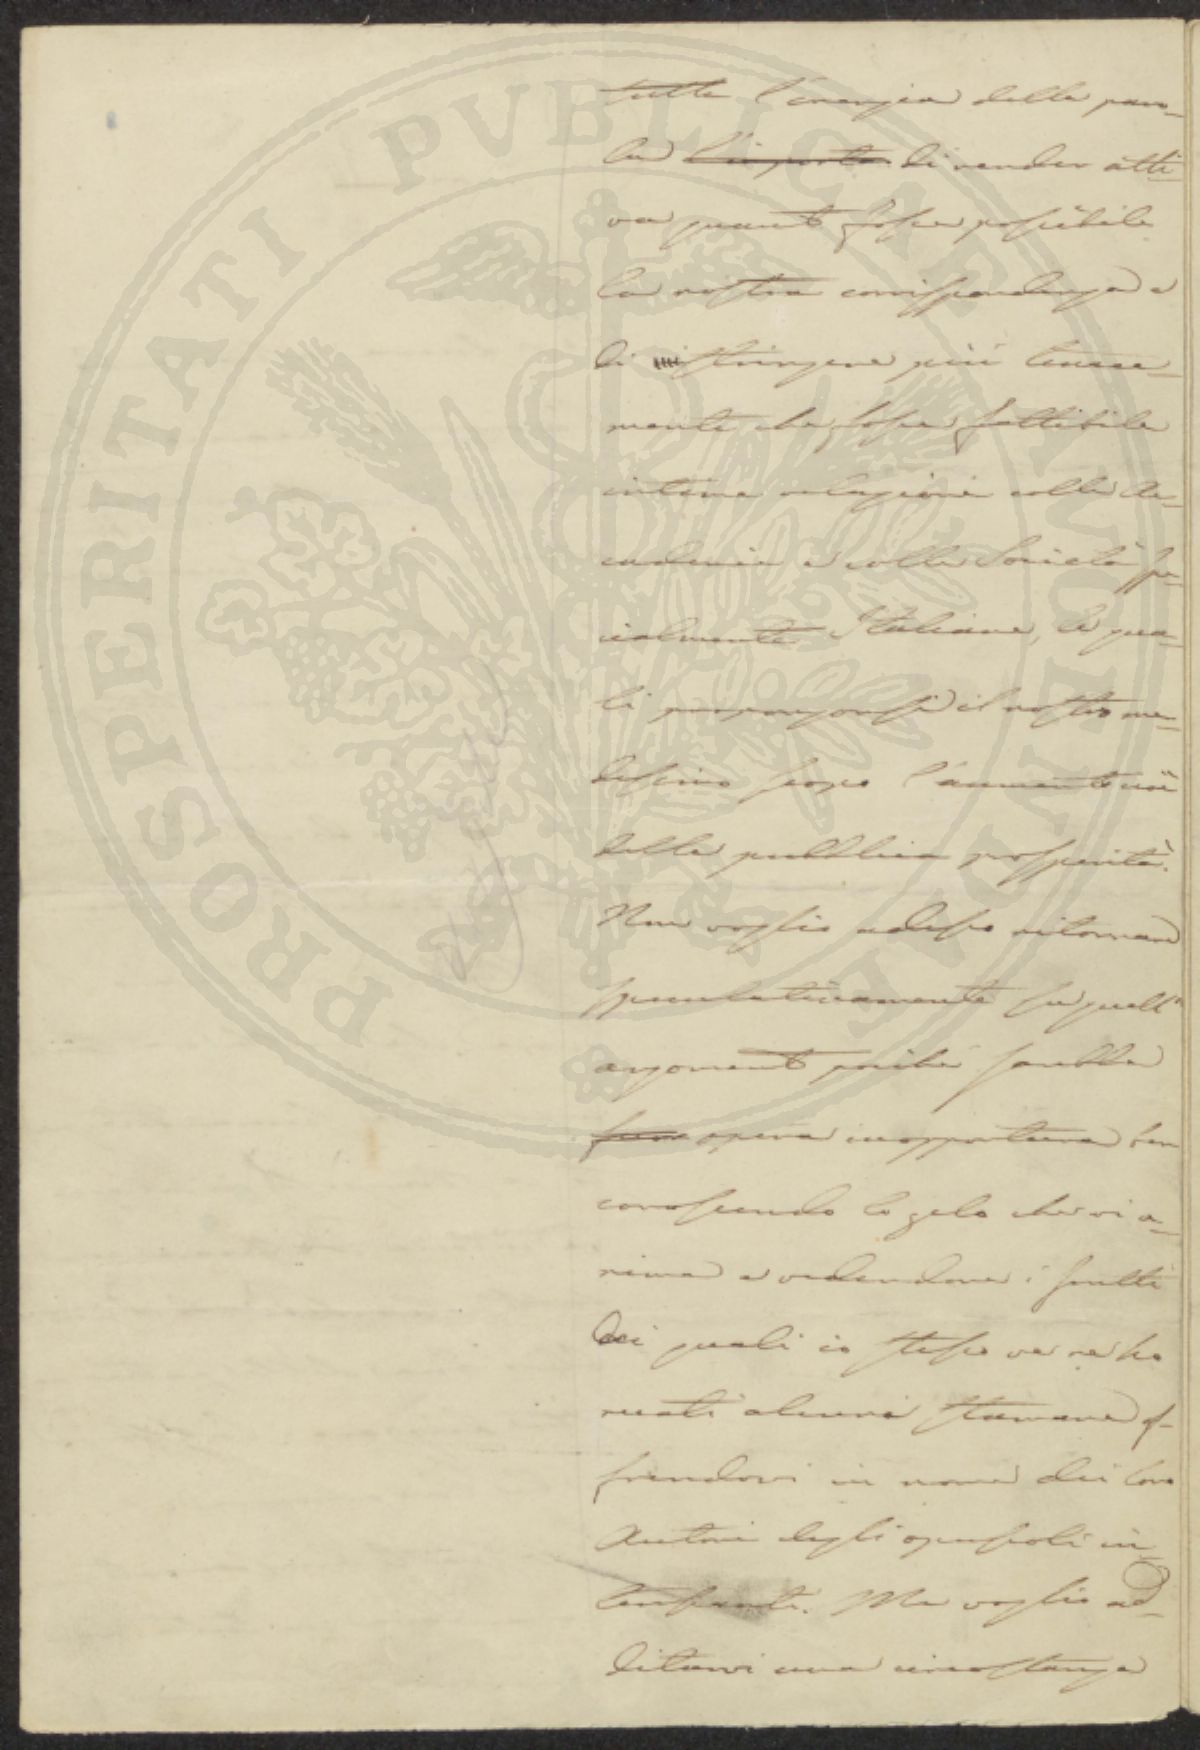 PROSPERITATI PVBLICAE AVGENDAE
tutta l'energia della paro-
la l'importa di render atti-
va quanto fosse possibile
la nostra corrispondenza e
di stringere più tenace-
mente che fosse fattibile
intime relazioni colle Ac-
cademie e colle Società spe-
cialmente Italiane, le qua-
li propongonsi il nostro me-
desimo scopo l'aumento cioè
della pubblica prosperità.
Non voglio adesso ritornare
speculativamente su quell'
argomento poiché sarebbe
fare opera inopportuna ben
conoscendo lo zelo che vi a-
nima e vedendone i frutti
dei quali io stesso ve ne ho
recati alcuni stamane of-
frendovi in nome dei loro
Autori degli opuscoli in-
teressanti. Ma voglio ad-
ditarvi una circostanza